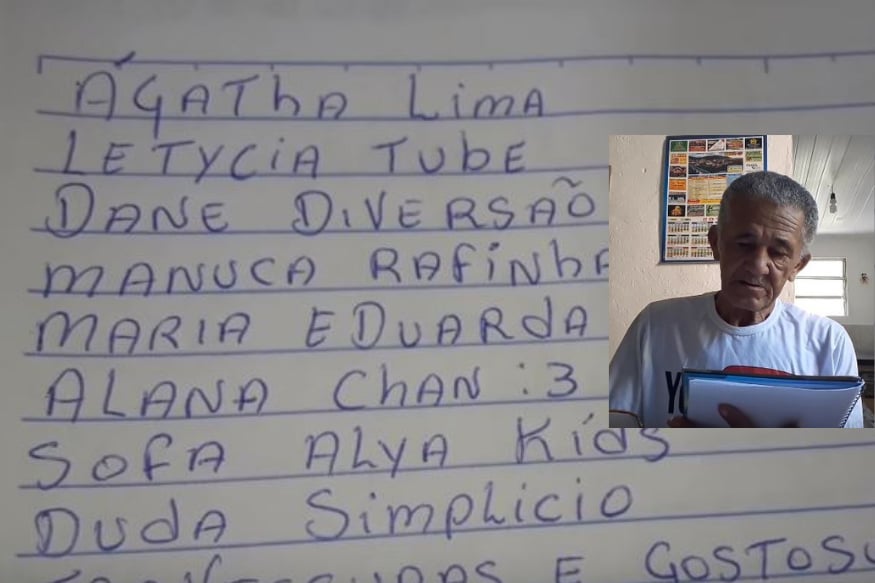 ÁGATHA LIMA
LETYCIA TUBE
DANE DIVERSÃO
MANUCA RAFINHA
MARIA EDUARDA
ALANA CHAN :3
SOFA ALYA KIDS
DUDA SIMPLICIO
E GOSTOSU
YO